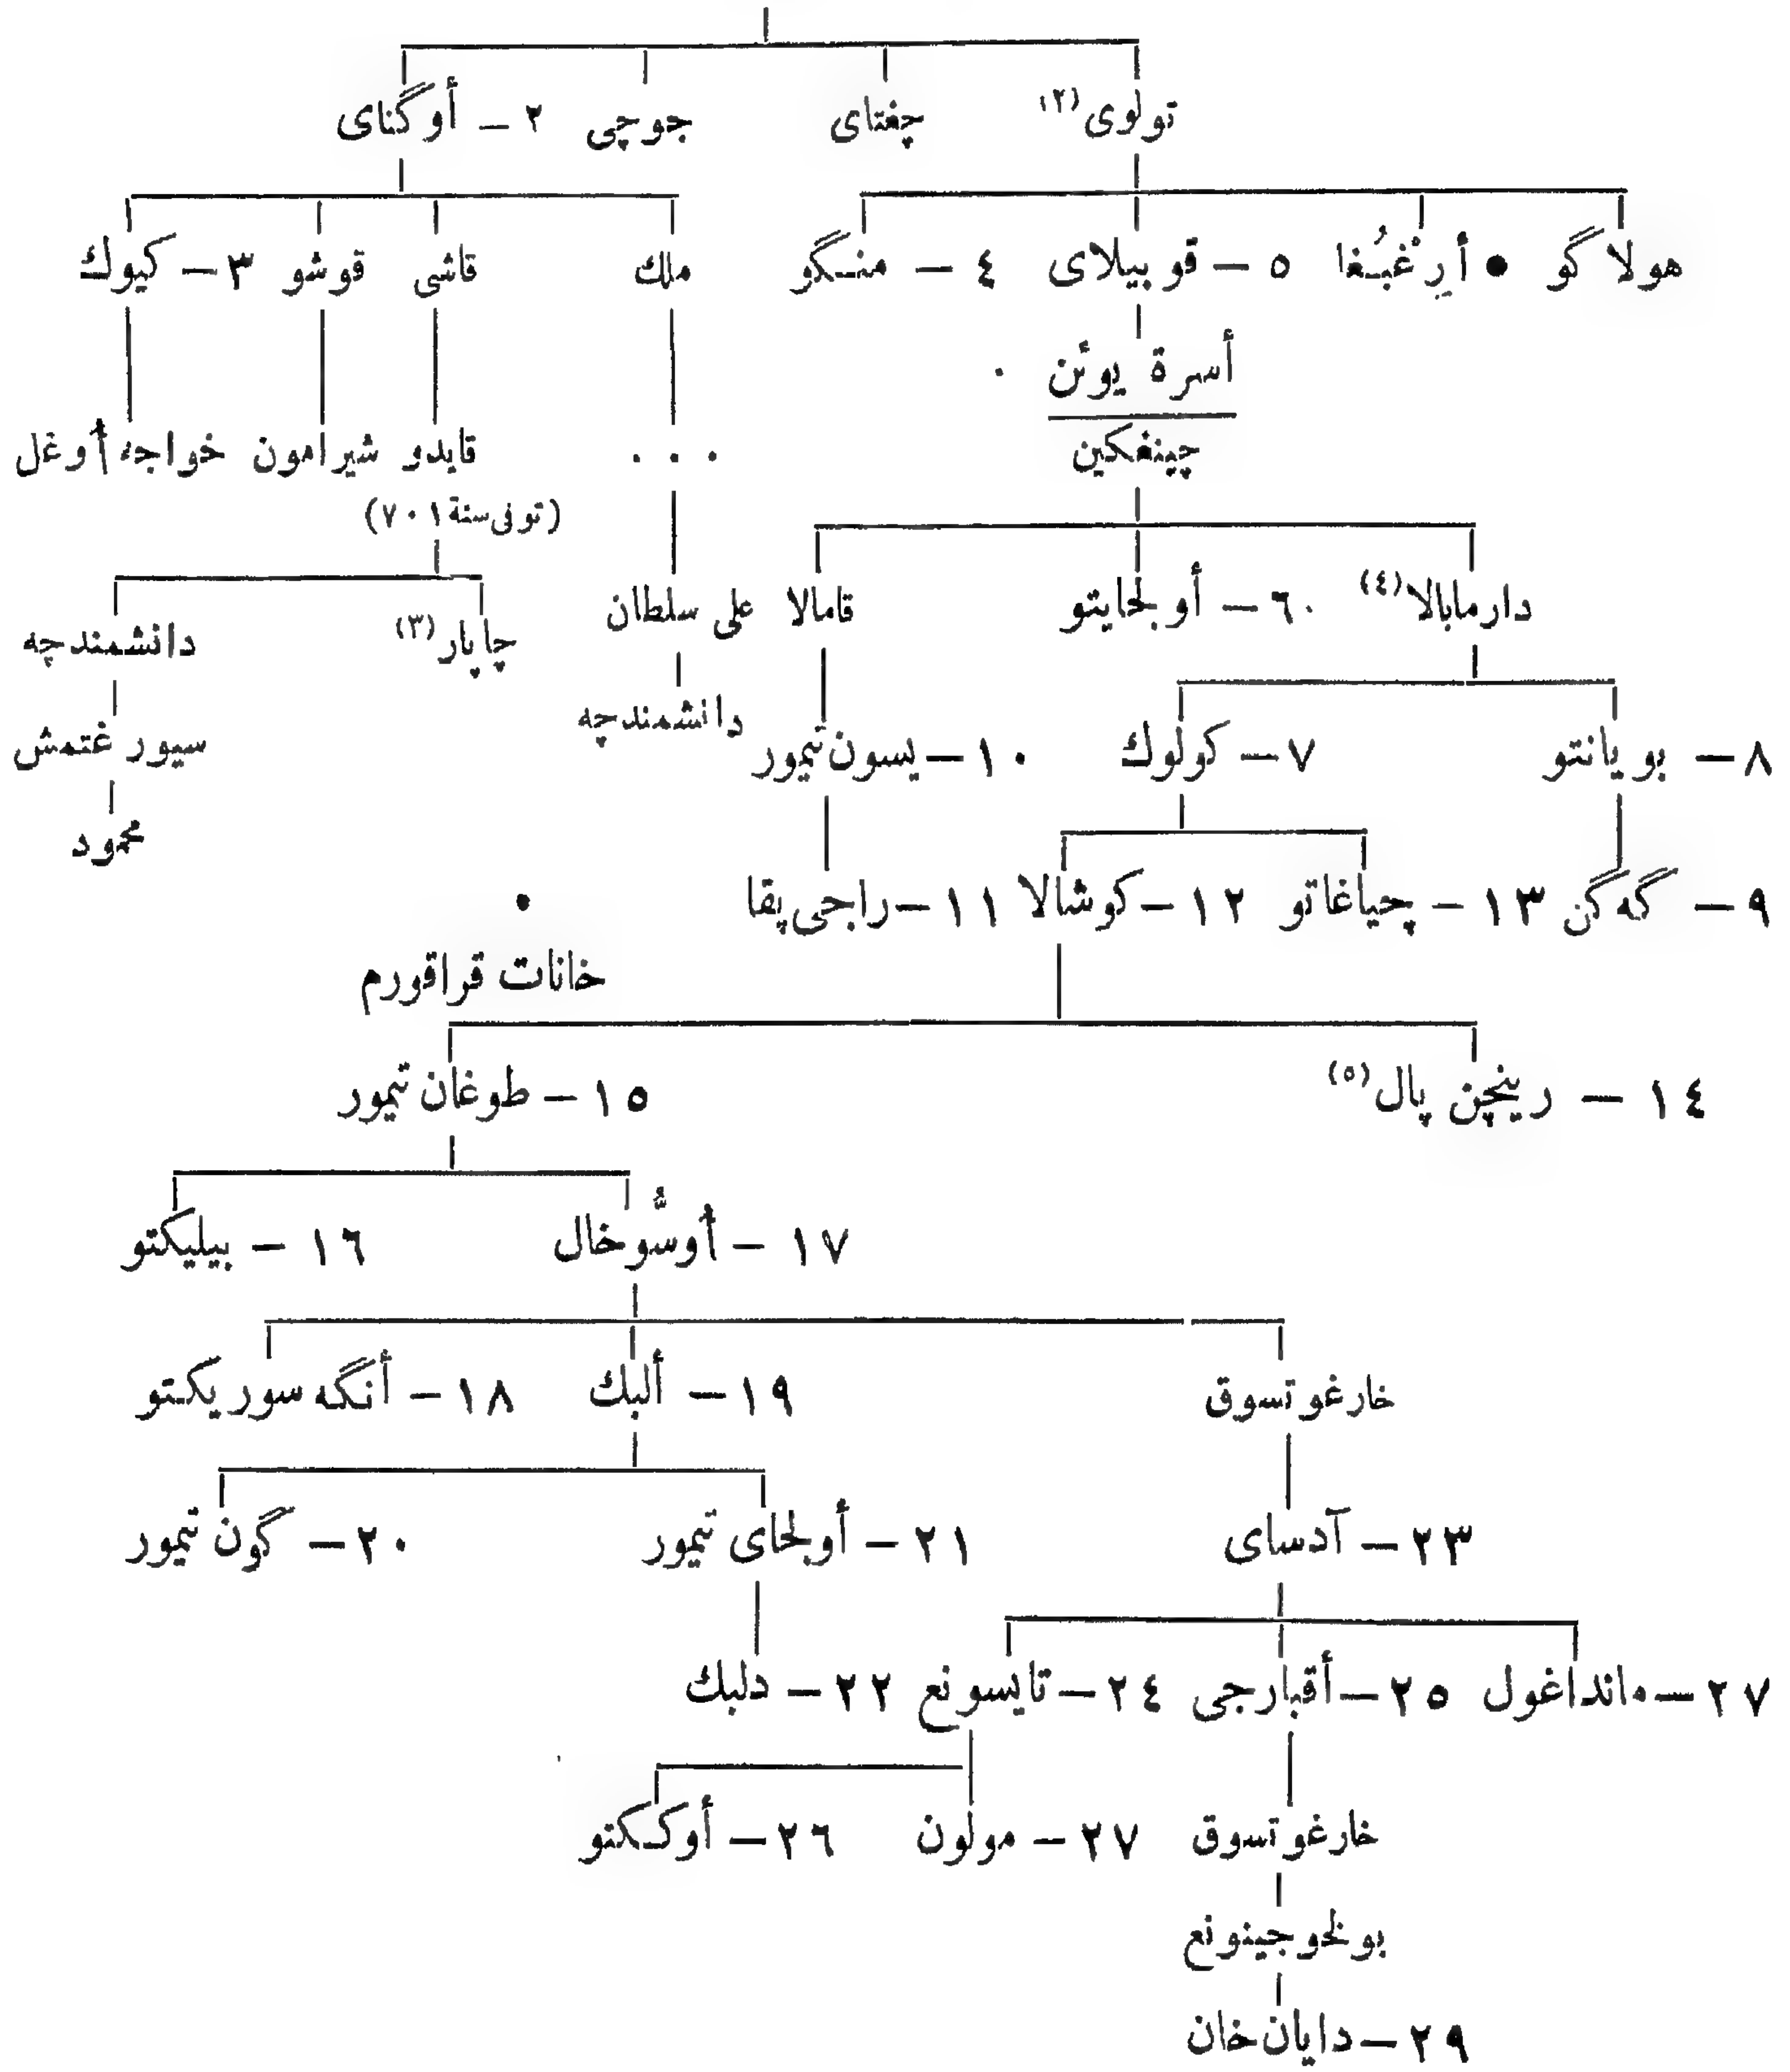 تولوى (٢) چغتاى جوچى ٢ – أوگتاى
هولاگو • أرِغْبُغا ٥ – قوبيلاى ٤ – منگو ملك قاشى قوشو ٣ – كيوك
أسرة يوئن
چينغكين ... قايدو شيرامون خواجه أوغل
(توفى سنة ٧٠١)
دارمابالا (٤) ٦ – أولجايتو قامالا على سلطان چاپار (٣) دانشمندچه
٨ – بويانتو ٧ – كولوك ١٠ – يسون تيمور دانشمندچه سيورغتمش
محمود
٩ – گه گن ١٣ – چياغاتو ١٢ – كوشالا ١١ – راجى پقا
خانات قراقورم
١٤ – رينچن پال (٥) ١٥ – طوغان تيمور
١٧ – أوسُّوخال ١٦ – بيليكتو
خارغوتسوق ١٩ – ألبك ١٨ – أنگه سوريكتو
٢٣ – آدساى ٢١ – أولجاى تيمور ٢٠ – گون تيمور
٢٧ – مانداغول ٢٥ – أقبارجى ٢٤ – تايسونغ ٢٢ – دلبك
خارغوتسوق ٢٧ – مولون ٢٦ – أوككتو
بولخوجينونغ
٢٩ – دايان خان